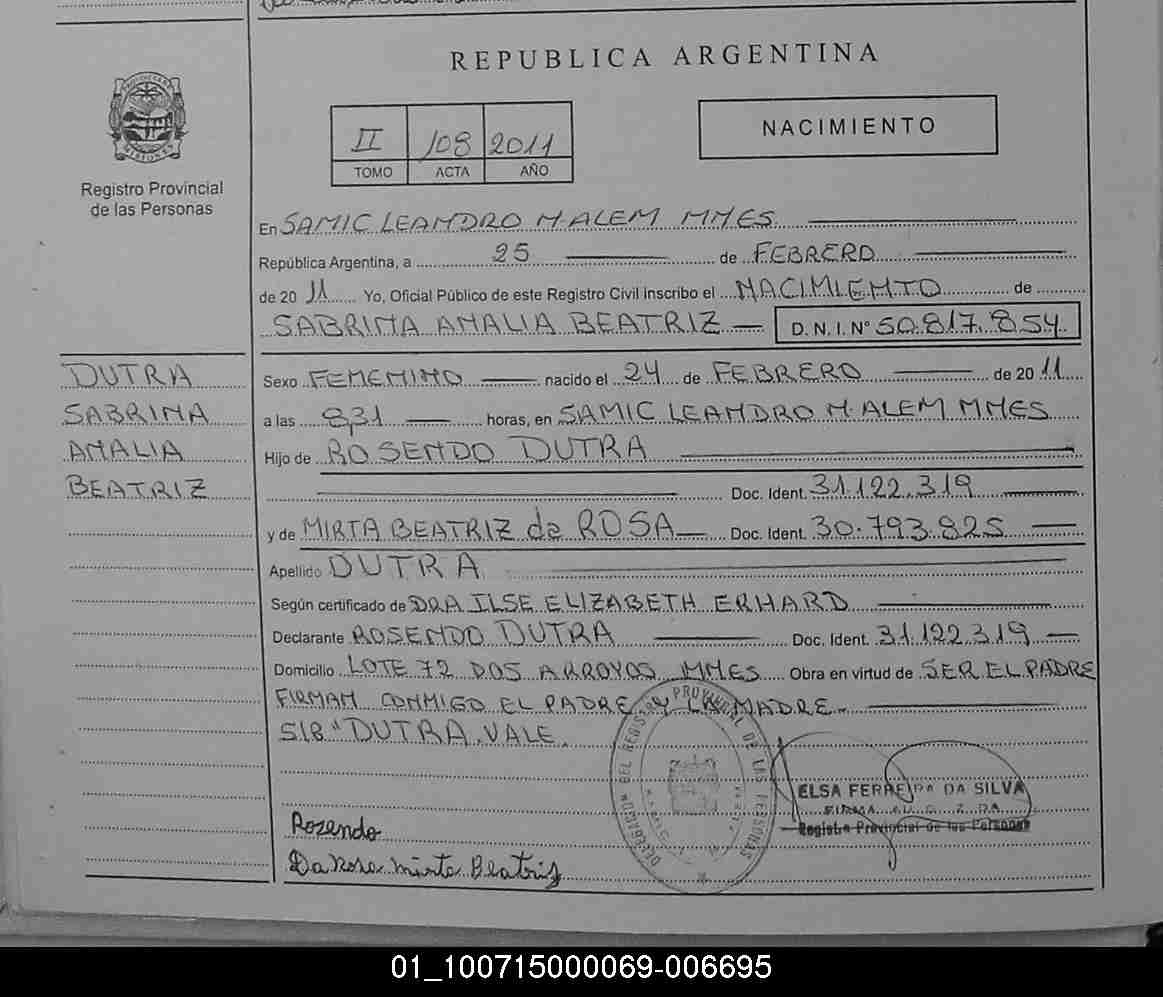 REPUBLICA ARGENTINA
II 108 2011
TOMO ACTA AÑO
NACIMIENTO
PROVINCIA DE MISIONES
Registro Provincial
de las Personas
En SAMIC LEANDRO N. ALEM MNES
República Argentina, a 25 de FEBRERO
de 2011 Yo, Oficial Público de este Registro Civil inscribo el NACIMIENTO de
SABRINA AMALIA BEATRIZ — D.N.I. N° 50.817.854
DUTRA
SABRINA
AMALIA
BEATRIZ
Sexo FEMENINO nacido el 24 de FEBRERO de 2011
a las 8,31 horas, en SAMIC LEANDRO N. ALEM MNES
Hijo de ROSENDO DUTRA
Doc. Ident. 31.122.319
y de MIRTA BEATRIZ de ROSA Doc. Ident. 30.793.825
Apellido DUTRA
Según certificado de DRA ILSE ELIZABETH ERHARD
Declarante ROSENDO DUTRA Doc. Ident. 31.122.319
Domicilio LOTE 72 DOS ARROYOS MNES Obra en virtud de SER EL PADRE
FIRMAN CONMIGO EL PADRE Y LA MADRE
S/Bº DUTRA. VALE.
DELEGACION DEL REGISTRO PROVINCIAL DE LAS PERSONAS
ELSA FERREIRA DA SILVA
FIRMA AUTORIZADA
Registro Provincial de las Personas
Rozendo
Da Rosa Mirta Beatriz
01_100715000069-006695